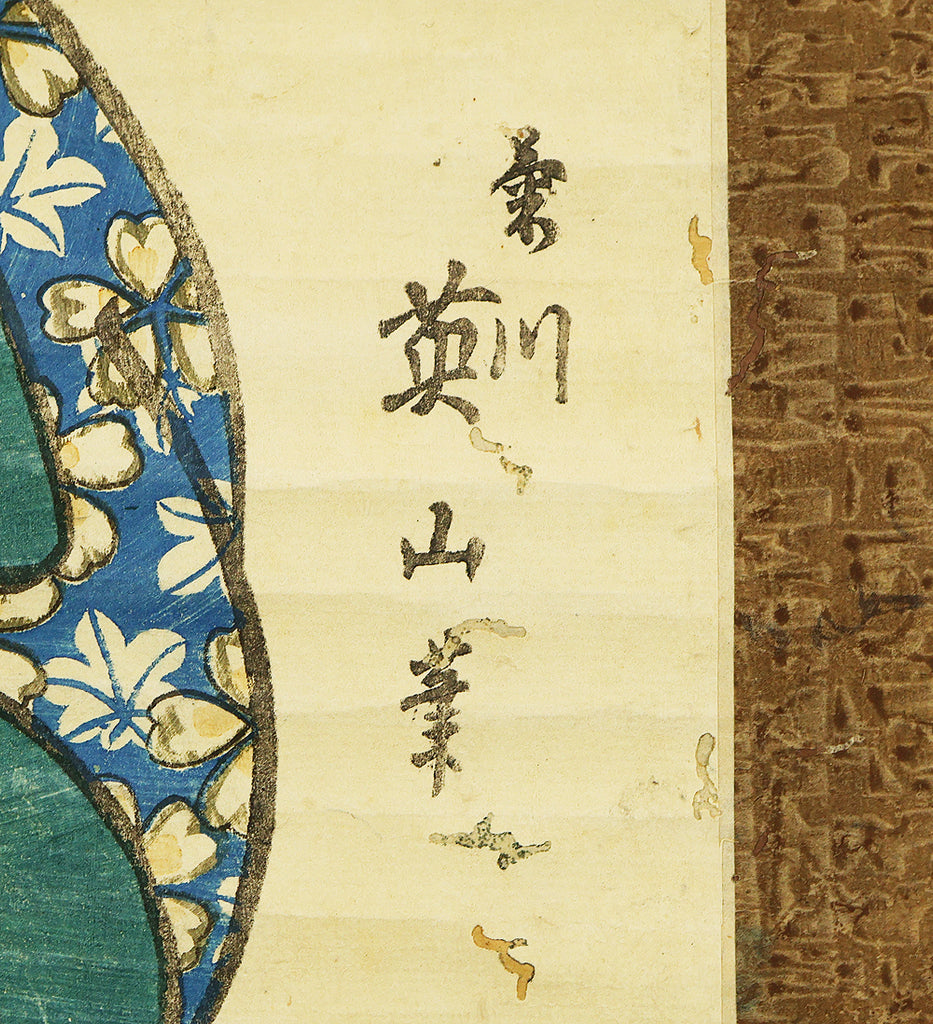 菊川
英山筆